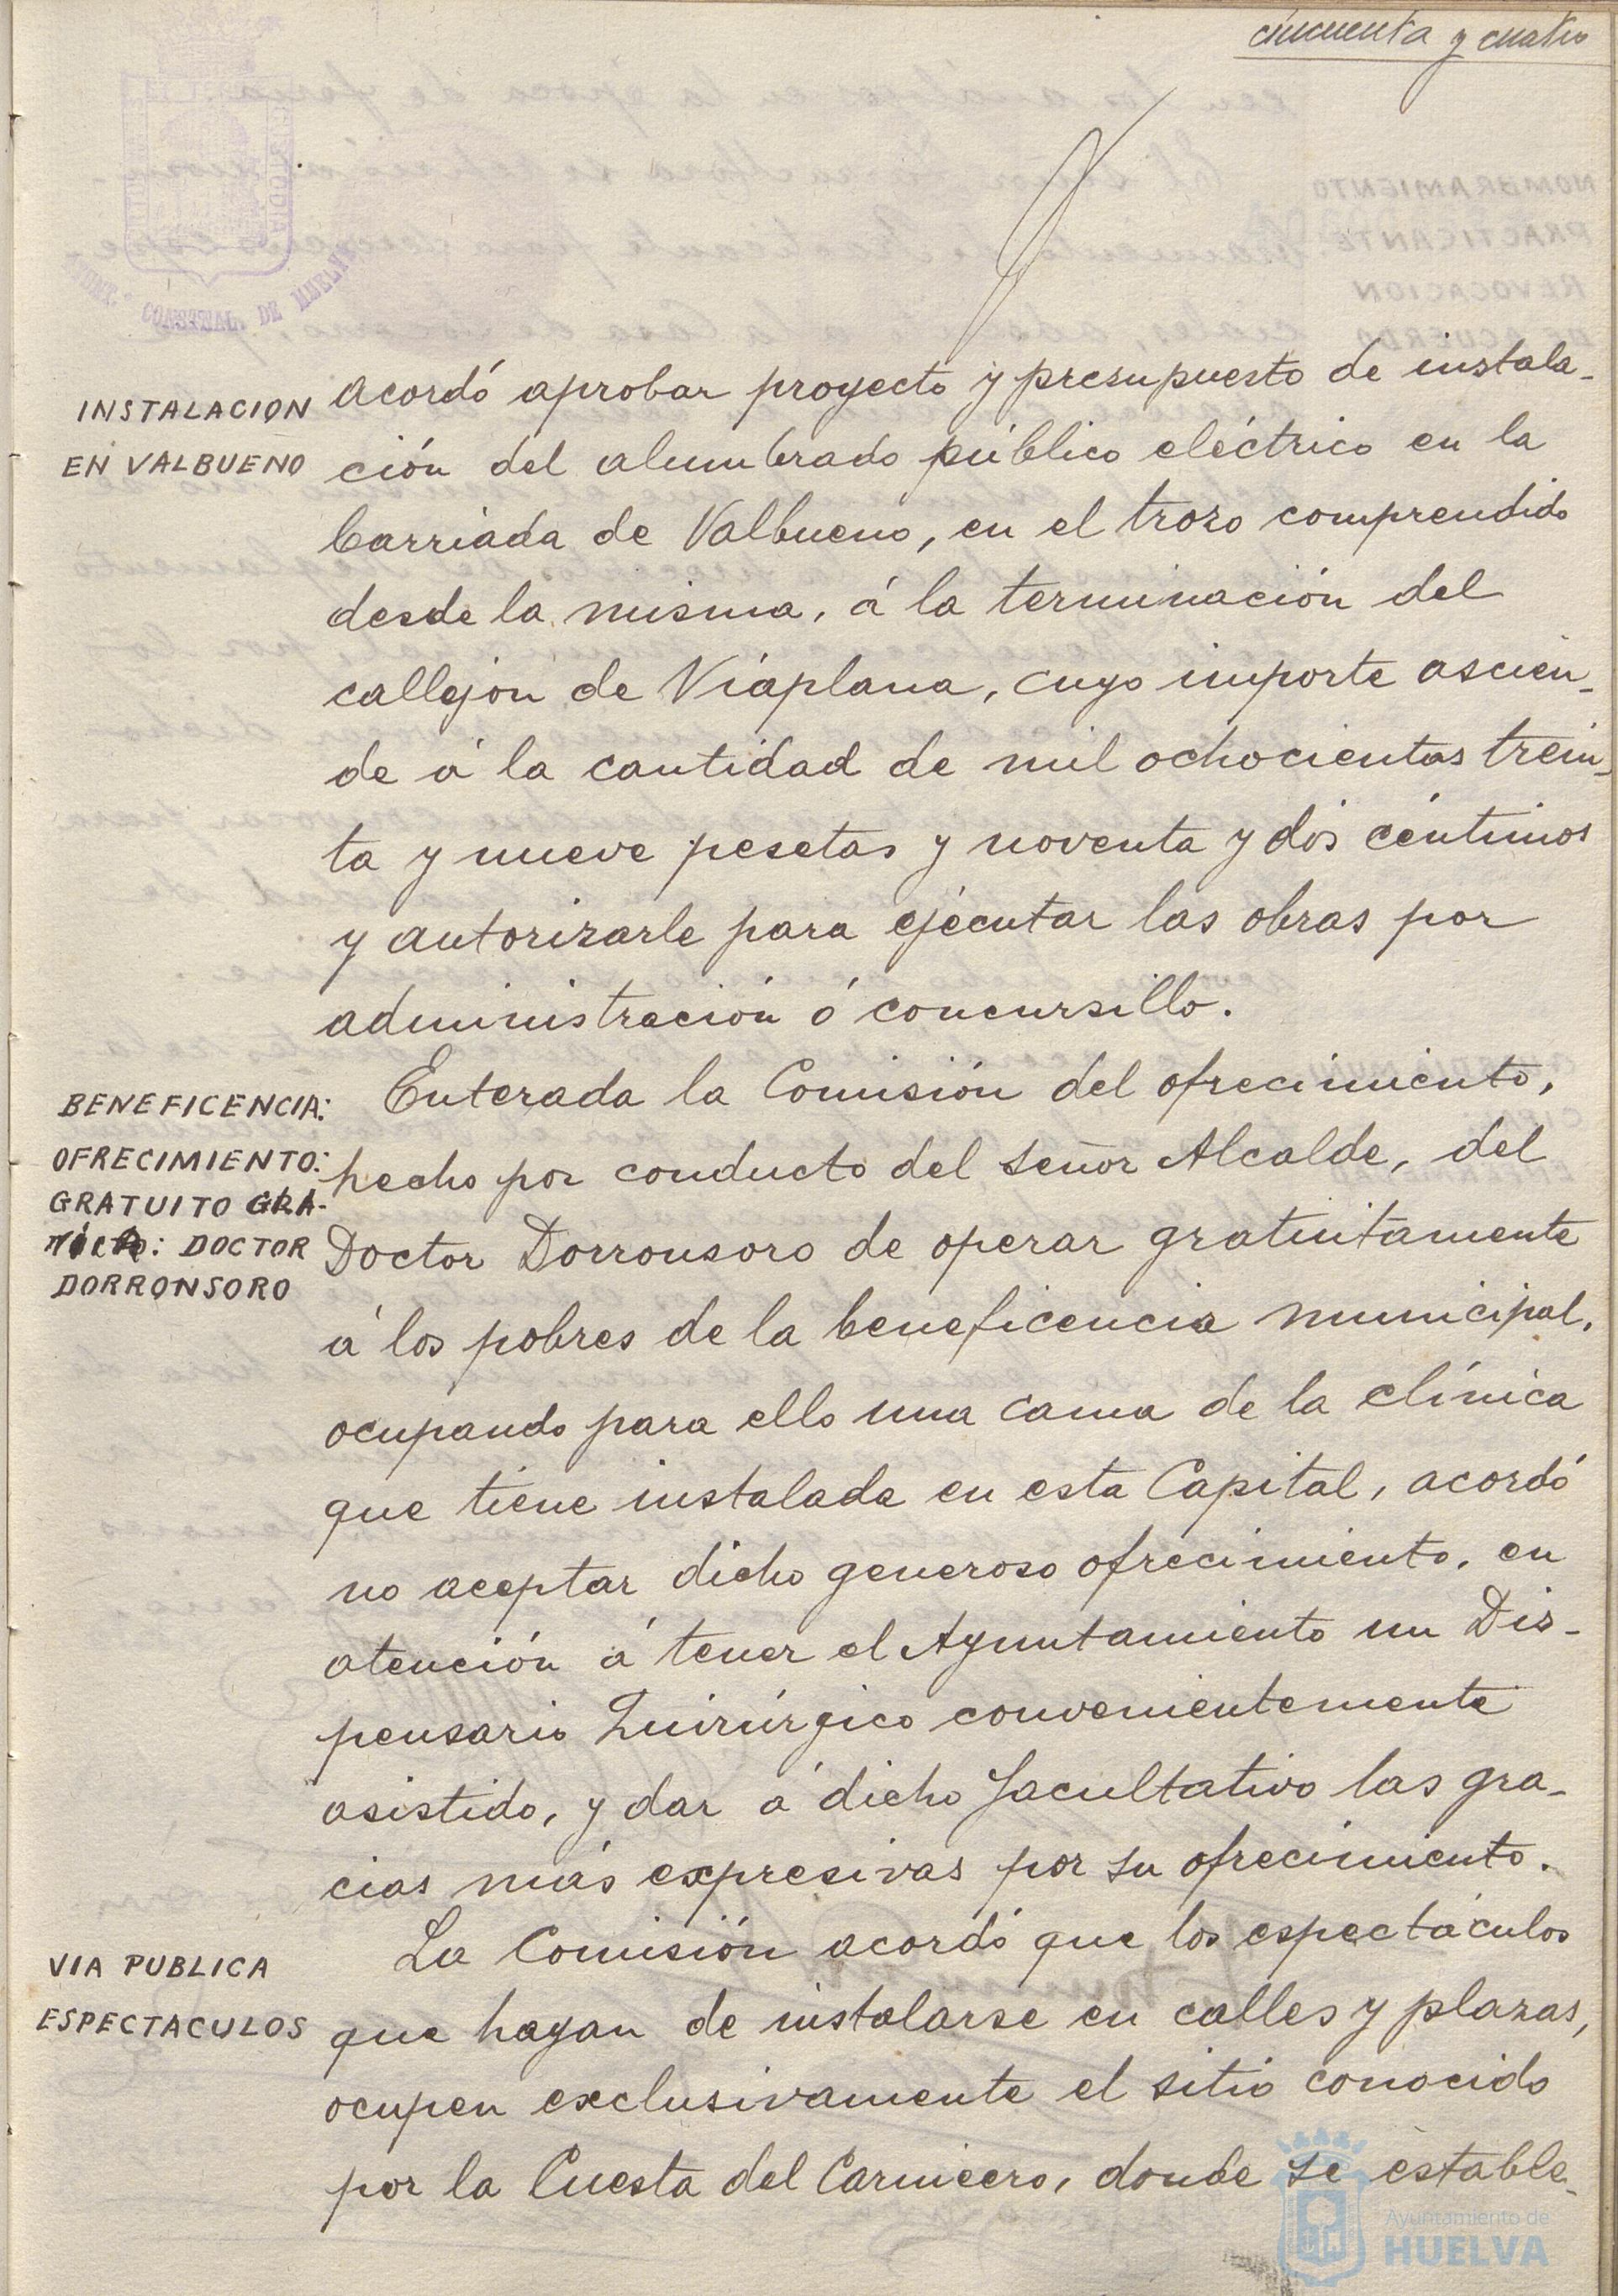 cincuenta y cuatro
AYUNT.º CONSTNAL. DE HUELVA
INSTALACION
EN VALBUENO
acordó aprobar proyecto y presupuesto de instala-
ción del alumbrado público eléctrico en la
barriada de Valbueno, en el trozo comprendido
desde la misma, á la terminación del
callejón de Viaplana, cuyo importe ascien-
de á la cantidad de mil ochocientas trein-
ta y nueve pesetas y noventa y dos céntimos
y autorizarle para ejecutar las obras por
administración ó concursillo.
BENEFICENCIA:
OFRECIMIENTO:
GRATUITO
DOCTOR
DORRONSORO
Enterada la Comisión del ofrecimiento,
hecho por conducto del señor Alcalde, del
Doctor Dorronsoro de operar gratuitamente
á los pobres de la beneficencia municipal,
ocupando para ello una cama de la clínica
que tiene instalada en esta Capital, acordó
no aceptar dicho generoso ofrecimiento, en
atención á tener el Ayuntamiento un Dis-
pensario Quirúrgico convenientemente
asistido, y dar á dicho facultativo las gra-
cias más expresivas por su ofrecimiento.
VIA PUBLICA
ESPECTACULOS
La Comisión acordó que los espectáculos
que hayan de instalarse en calles y plazas,
ocupen exclusivamente el sitio conocido
por la Cuesta del Carnicero, donde se estable-
Ayuntamiento de
HUELVA